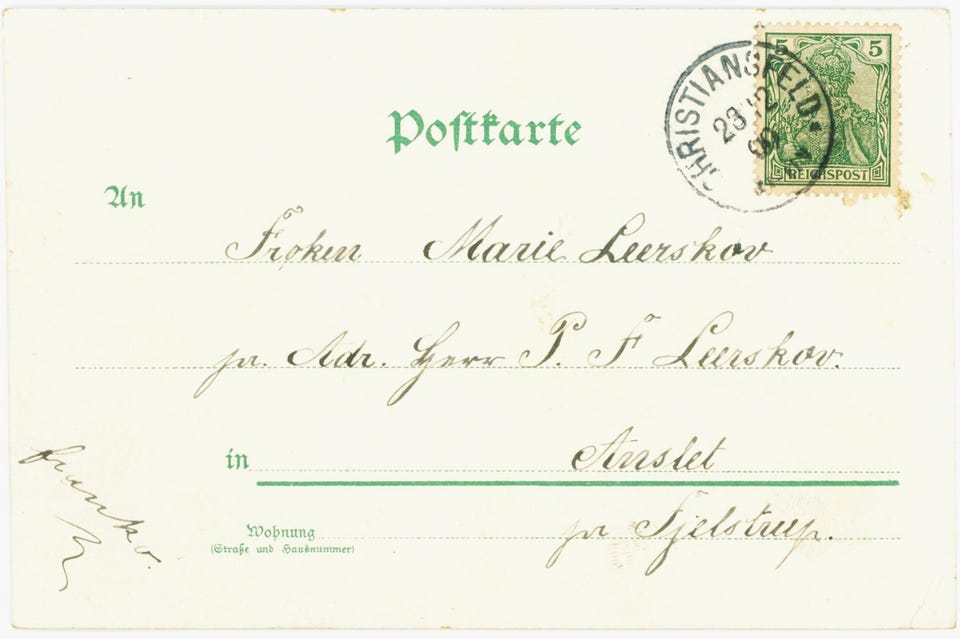 Postkarte
5 5
REICHSPOST
CHRISTIANSFELD
23 12
An
Frøken Marie Leerskov
pr. Adr. Herr P. F Leerskov.
in Anslet
Wohnung
(Straße und Hausnummer)
pr Fjelstrup.
franko